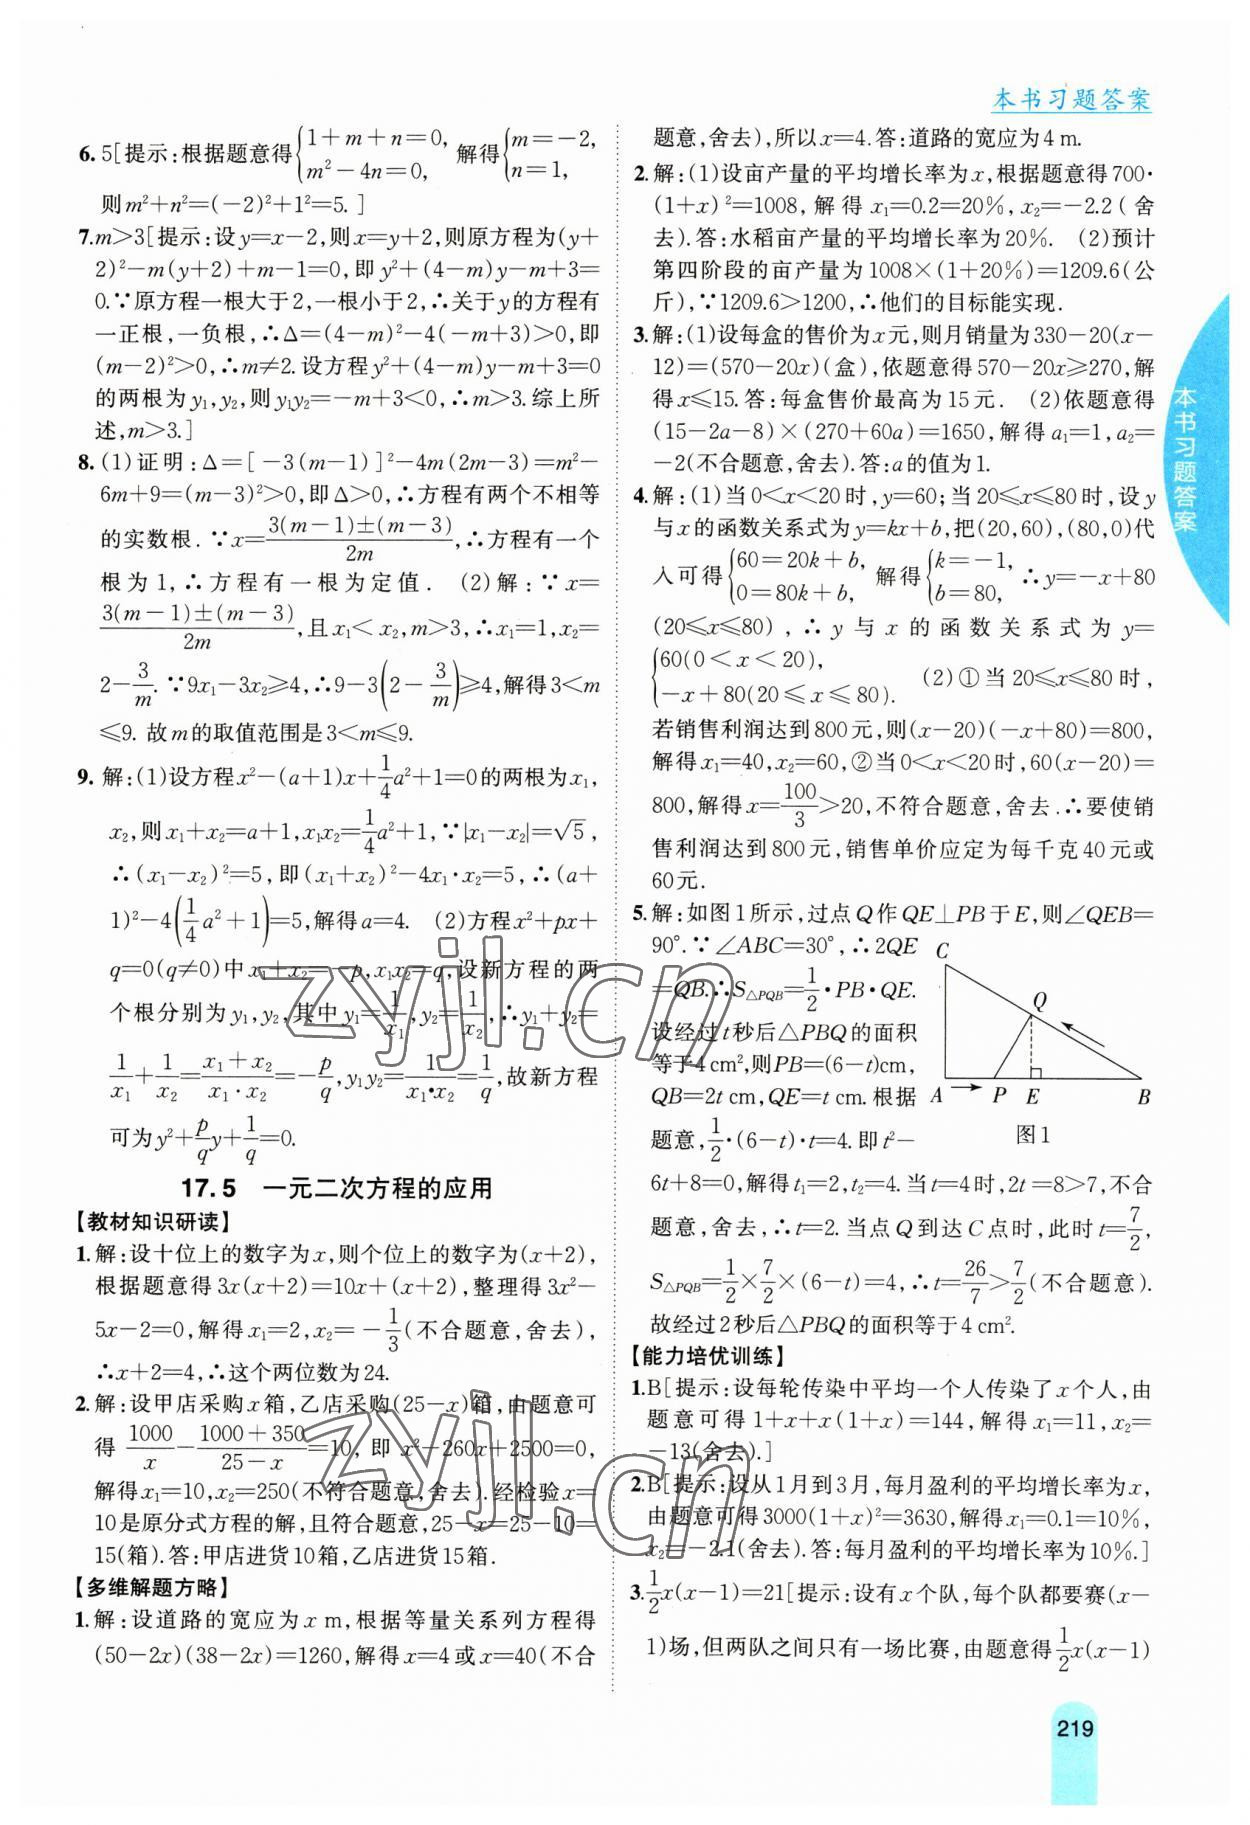 本书习题答案
6. 5[提示:根据题意得{1+m+n=0, m²-4n=0, 解得{m=-2, n=1,
则m²+n²=(-2)²+1²=5. ]
7.m>3[提示:设y=x-2,则x=y+2,则原方程为(y+
2)²-m(y+2)+m-1=0,即y²+(4-m)y-m+3=
0.∵原方程一根大于2,一根小于2,∴关于y的方程有
一正根,一负根,∴Δ=(4-m)²-4(-m+3)>0,即
(m-2)²>0,∴m≠2.设方程y²+(4-m)y-m+3=0
的两根为y₁,y₂,则y₁y₂=-m+3<0,∴m>3.综上所
述,m>3.]
8. (1)证明:Δ=[-3(m-1)]²-4m(2m-3)=m²-
6m+9=(m-3)²>0,即Δ>0,∴方程有两个不相等
的实数根. ∵x=\frac{3(m-1)±(m-3)}{2m},∴方程有一个
根为1,∴方程有一根为定值. (2)解:∵x=
\frac{3(m-1)±(m-3)}{2m},且x₁<x₂,m>3,∴x₁=1,x₂=
2-\frac{3}{m}. ∵9x₁-3x₂≥4,∴9-3(2-\frac{3}{m})≥4,解得3<m
≤9. 故m的取值范围是3<m≤9.
9. 解:(1)设方程x²-(a+1)x+\frac{1}{4}a²+1=0的两根为x₁,
x₂,则x₁+x₂=a+1,x₁x₂=\frac{1}{4}a²+1,∵|x₁-x₂|=√5,
∴(x₁-x₂)²=5,即(x₁+x₂)²-4x₁·x₂=5,∴(a+
1)²-4(\frac{1}{4}a²+1)=5,解得a=4. (2)方程x²+px+
q=0(q≠0)中x₁+x₂=-p,x₁x₂=q,设新方程的两
个根分别为y₁,y₂,其中y₁=\frac{1}{x₁},y₂=\frac{1}{x₂},∴y₁+y₂=
\frac{1}{x₁}+\frac{1}{x₂}=\frac{x₁+x₂}{x₁·x₂}=-\frac{p}{q},y₁y₂=\frac{1}{x₁•x₂}=\frac{1}{q},故新方程
可为y²+\frac{p}{q}y+\frac{1}{q}=0.
17.5 一元二次方程的应用
【教材知识研读】
1.解:设十位上的数字为x,则个位上的数字为(x+2),
根据题意得3x(x+2)=10x+(x+2),整理得3x²-
5x-2=0,解得x₁=2,x₂=-\frac{1}{3}(不合题意,舍去),
∴x+2=4,∴这个两位数为24.
2. 解:设甲店采购x箱,乙店采购(25-x)箱,由题意可
得 \frac{1000}{x}-\frac{1000+350}{25-x}=10,即x²-260x+2500=0,
解得x₁=10,x₂=250(不符合题意,舍去).经检验x=
10是原分式方程的解,且符合题意,25-x=25-10=
15(箱).答:甲店进货10箱,乙店进货15箱.
【多维解题方略】
1.解:设道路的宽应为x m,根据等量关系列方程得
(50-2x)(38-2x)=1260,解得x=4或x=40(不合
题意,舍去),所以x=4.答:道路的宽应为4 m.
2.解:(1)设亩产量的平均增长率为x,根据题意得700·
(1+x)²=1008,解得x₁=0.2=20%,x₂=-2.2(舍
去).答:水稻亩产量的平均增长率为20%. (2)预计
第四阶段的亩产量为1008×(1+20%)=1209.6(公
斤),∵1209.6>1200,∴他们的目标能实现.
3.解:(1)设每盒的售价为x元,则月销量为330-20(x-
12)=(570-20x)(盒),依题意得570-20x≥270,解
得x≤15.答:每盒售价最高为15元. (2)依题意得
(15-2a-8)×(270+60a)=1650,解得a₁=1,a₂=
-2(不合题意,舍去).答:a的值为1.
4.解:(1)当0<x<20时,y=60;当20≤x≤80时,设y
与x的函数关系式为y=kx+b,把(20,60),(80,0)代
入可得{60=20k+b, 0=80k+b, 解得{k=-1, b=80, ∴y=-x+80
(20≤x≤80),∴y与x的函数关系式为y=
{60(0<x<20), -x+80(20≤x≤80). (2)①当20≤x≤80时,
若销售利润达到800元,则(x-20)(-x+80)=800,
解得x₁=40,x₂=60,②当0<x<20时,60(x-20)=
800,解得x=\frac{100}{3}>20,不符合题意,舍去.∴要使销
售利润达到800元,销售单价应定为每千克40元或
60元.
5.解:如图1所示,过点Q作QE⊥PB于E,则∠QEB=
90°.∵∠ABC=30°,∴2QE
=QB.∴S△PQB=\frac{1}{2}·PB·QE.
设经过t秒后△PBQ的面积
等于4 cm²,则PB=(6-t)cm,
QB=2t cm,QE=t cm.根据
题意,\frac{1}{2}·(6-t)·t=4.即t²-
C
Q
A P E B
图1
6t+8=0,解得t₁=2,t₂=4.当t=4时,2t=8>7,不合
题意,舍去,∴t=2.当点Q到达C点时,此时t=\frac{7}{2},
S△PQB=\frac{1}{2}×\frac{7}{2}×(6-t)=4,∴t=\frac{26}{7}>\frac{7}{2}(不合题意).
故经过2秒后△PBQ的面积等于4 cm².
【能力培优训练】
1.B[提示:设每轮传染中平均一个人传染了x个人,由
题意可得1+x+x(1+x)=144,解得x₁=11,x₂=
-13(舍去).]
2.B[提示:设从1月到3月,每月盈利的平均增长率为x,
由题意可得3000(1+x)²=3630,解得x₁=0.1=10%,
x₂=-2.1(舍去).答:每月盈利的平均增长率为10%.]
3.\frac{1}{2}x(x-1)=21[提示:设有x个队,每个队都要赛(x-
1)场,但两队之间只有一场比赛,由题意得\frac{1}{2}x(x-1)
本书习题答案
219
zyjl.cn
zyjl.cn